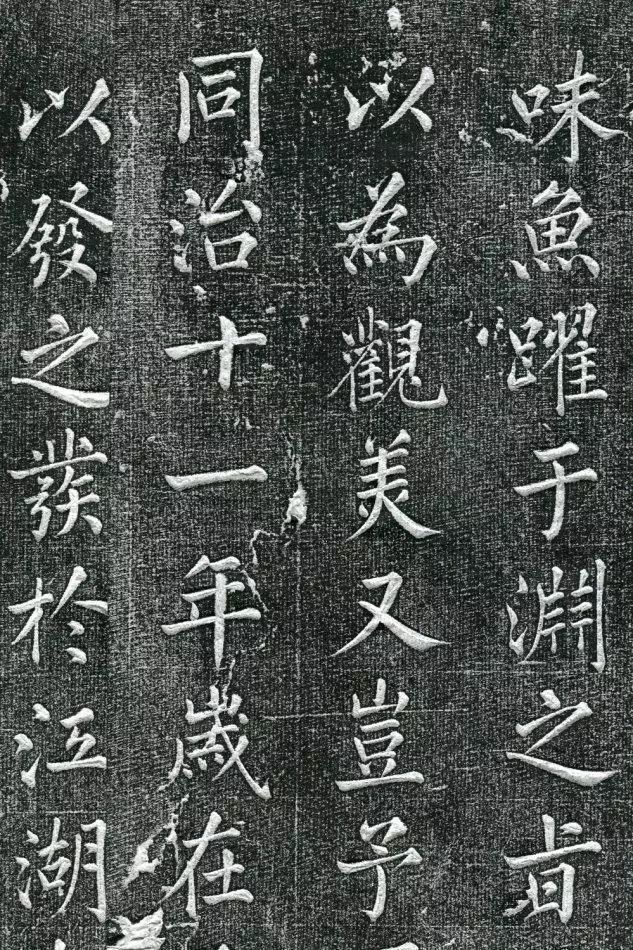 味魚躍于淵之旨
以為觀美又豈予
同治十一年歲在
以發之於江湖